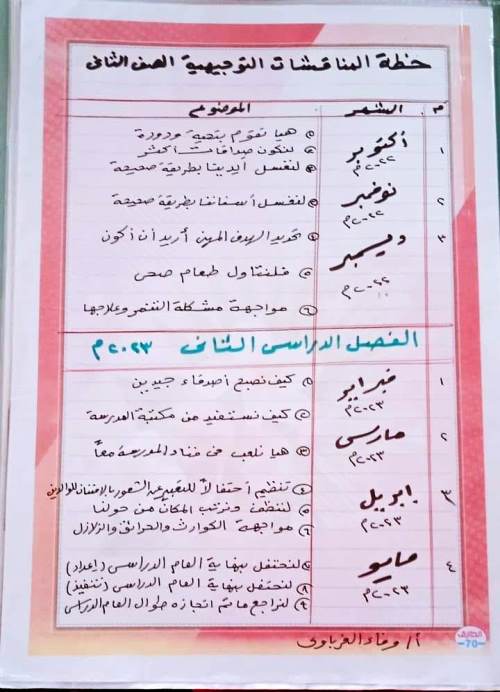 خطة المناقشات التوجيهية الصف الثانى
م الشهر الموضوع
١ أكتوبر ٢٠٢٢م
هيا نقوم بتحية ودودة
لنكون صداقات أكثر
لنغسل أيدينا بطريقة صحيحة
٢ نوفمبر ٢٠٢٢م
لنغسل أسناننا بطريقة صحيحة
٣ ديسمبر ٢٠٢٢م
تحديد الهدف المهنى أريد أن أكون
فلنتناول طعام صحى
٦ مواجهة مشكلة التنمر وعلاجها
الفصل الدراسى الثانى ٢٠٢٣م
١ فبراير ٢٠٢٣م
١ كيف نصبح أصدقاء جيدين
٢ كيف نستفيد من مكتبة المدرسة
٢ مارس ٢٠٢٣م
٣ هيا نلعب فى فناء المدرسة معاً
٣ ابريل ٢٠٢٣م
٤ تنظيم أحتفالاً للتعبير عن الشعور بالامتنان للوالدين
٥ لننظف ونرتب المكان من حولنا
٦ مواجهة الكوارث والحرائق والزلازل
٤ مايو ٢٠٢٣م
٧ لنحتفل بنهاية العام الدراسى (إعداد)
٨ لنحتفل بنهاية العام الدراسى (تنفيذ)
٩ لنراجع ما تم انجازه طوال العام الدراسى
أ/ وفاء الغرباوى
-70-